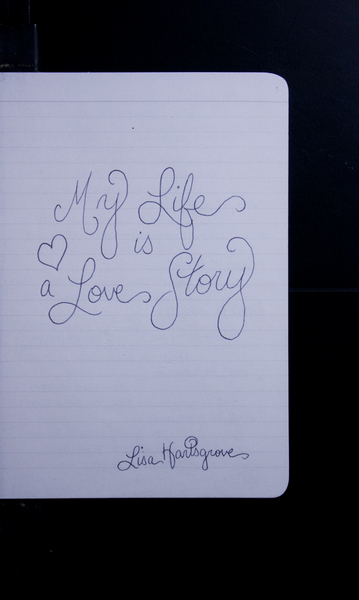 My Life
is
a Love Story
Lisa Hartsgrove